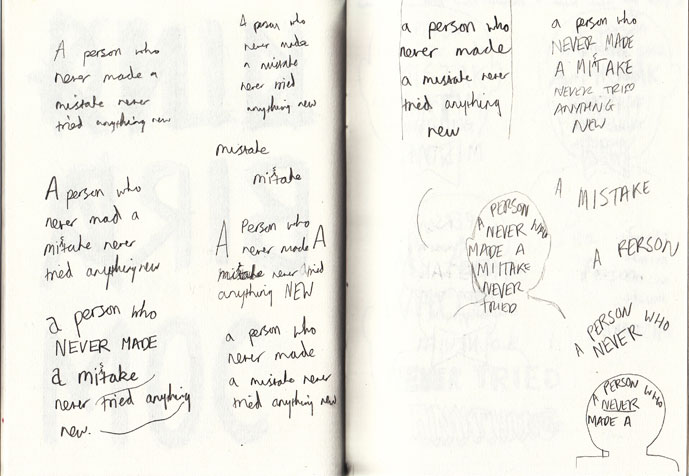 A person who
never made a
mistake never
tried anything new
A person who
never made
a mistake
never tried
anything new
mistake
mistake
A person who
never mad a
mistake never
tried anything new
A Person who
never made A
mistake never tried
anything NEW
a person who
NEVER MADE
a mistake
never tried anything
new.
a person who
never made
a mistake never
tried anything new
a person who
never made
a mistake never
tried anything
new
a person who
NEVER MADE
A MITAKE
S
NEVER TRIED
ANYTHING
NEW
A PERSON
NEVER
MADE A
MIITAKE
NEVER
TRIED
A MISTAKE
A PERSON
A PERSON WHO
NEVER
A PERSON WHO
NEVER
MADE A